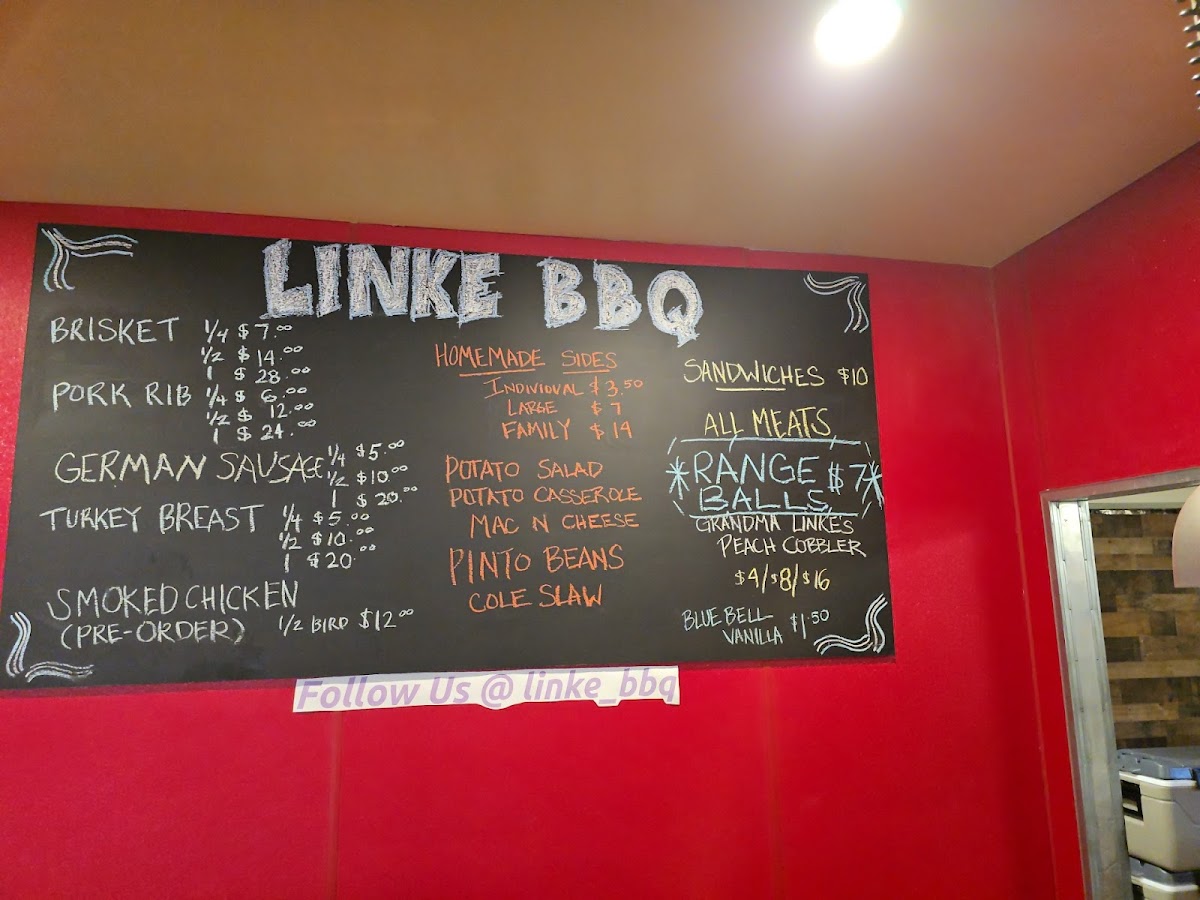 LINKE BBQ
BRISKET 1/4 $7.00
1/2 $14.00
1 $28.00
PORK RIB 1/4 $6.00
1/2 $12.00
1 $24.00
GERMAN SAUSAGE 1/4 $5.00
1/2 $10.00
1 $20.00
TURKEY BREAST 1/4 $5.00
1/2 $10.00
1 $20.00
SMOKED CHICKEN
(PRE-ORDER) 1/2 BIRD $12.00
HOMEMADE SIDES
INDIVIDUAL $3.50
LARGE $7
FAMILY $14
POTATO SALAD
POTATO CASSEROLE
MAC N CHEESE
PINTO BEANS
COLE SLAW
SANDWICHES $10
ALL MEATS
*RANGE $7*
BALLS
GRANDMA LINKE'S
PEACH COBBLER
$4/$8/$16
BLUE BELL $1.50
VANILLA
Follow Us @ linke_bbq